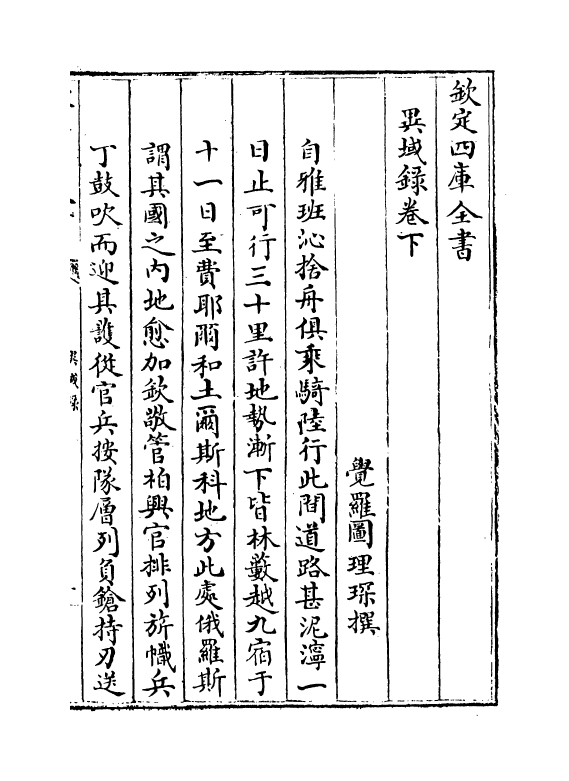 欽定四庫全書
異域錄卷下
覺羅圖理琛撰
自雅班沁捨舟俱乘騎陸行此間道路甚泥濘一
日止可行三十里許地勢漸下皆林藪越九宿于
十一日至費耶爾和土爾斯科地方此處俄羅斯
謂其國之内地愈加欽敬管柏興官排列旂幟兵
丁鼓吹而迎其護從官兵按隊層列負鎗持刃送
異域錄